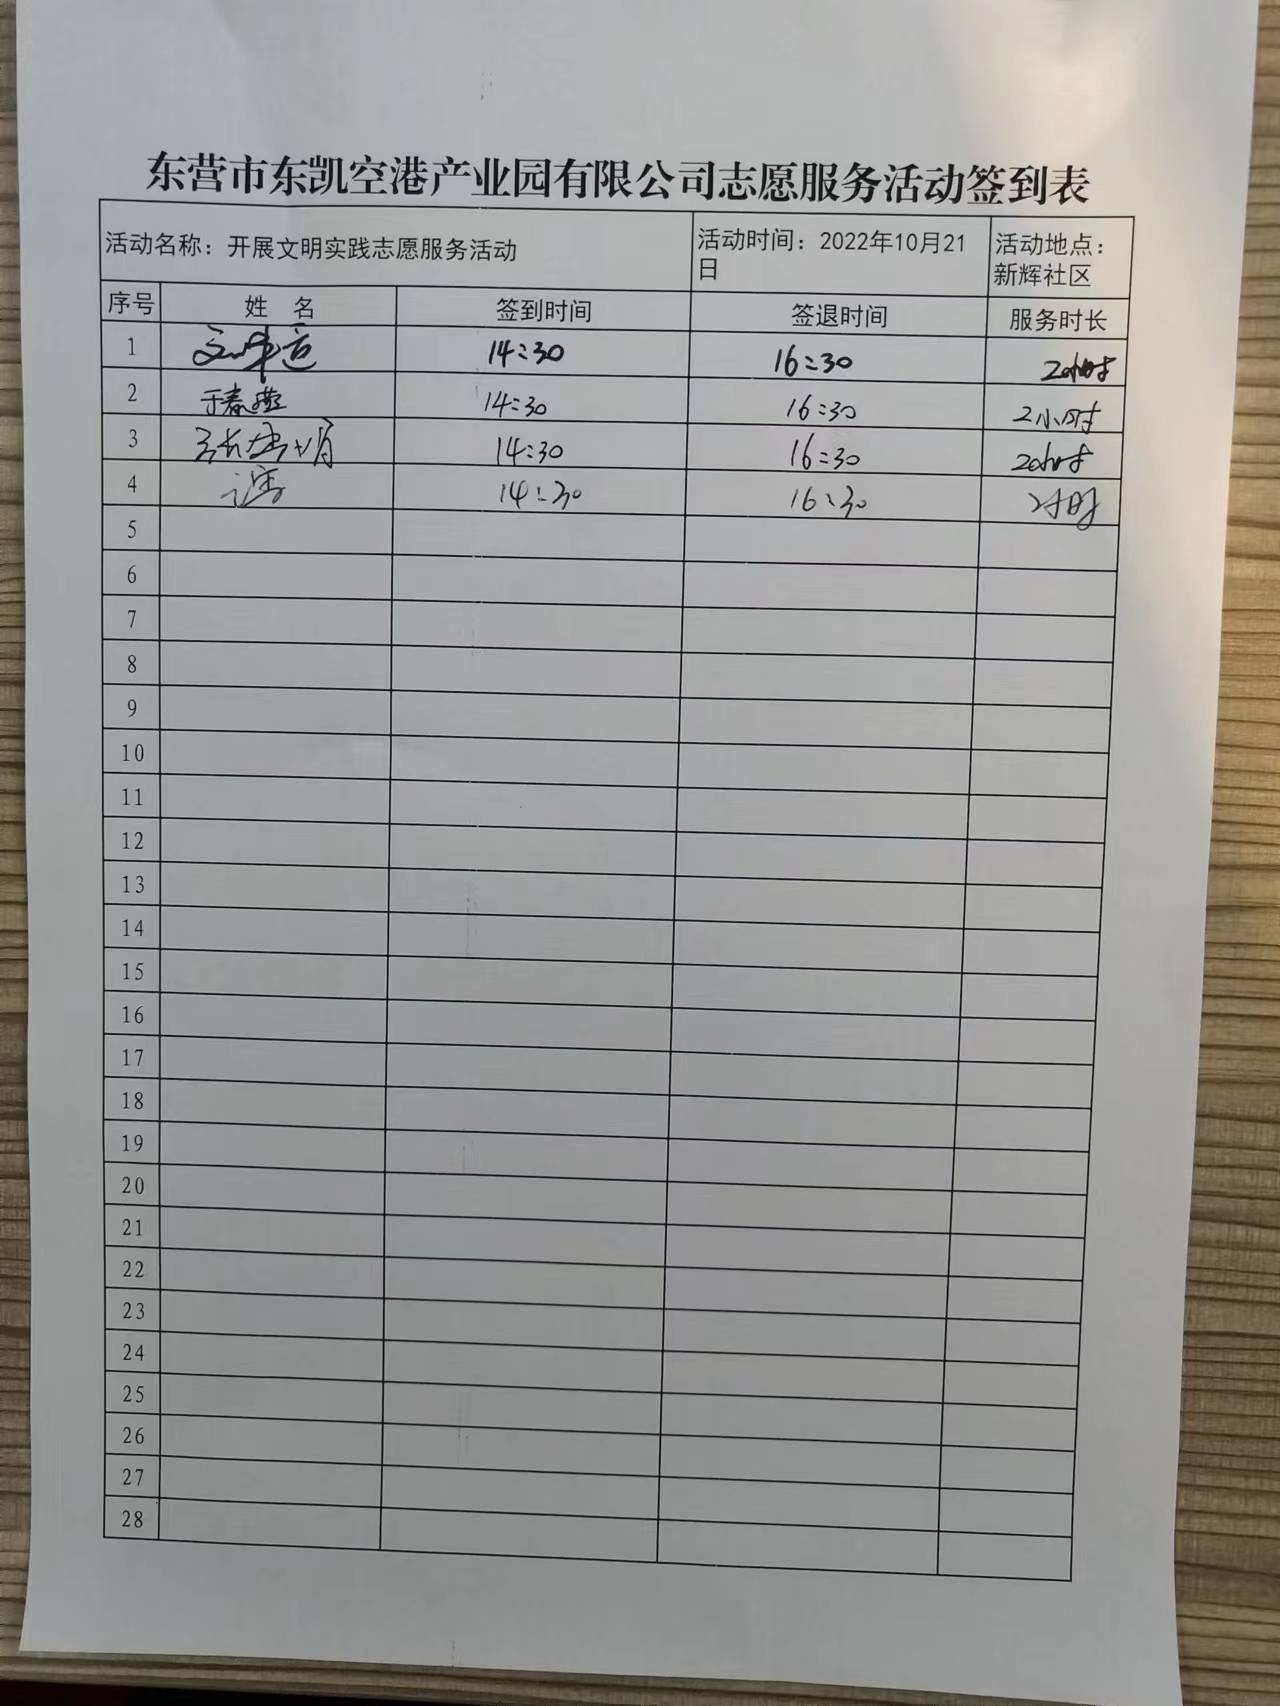 东营市东凯空港产业园有限公司志愿服务活动签到表
活动名称：开展文明实践志愿服务活动 活动时间：2022年10月21日 活动地点：新辉社区
序号 姓 名 签到时间 签退时间 服务时长
1 14:30 16:30 2小时
2 于春燕 14:30 16:30 2小时
3 14:30 16:30 2小时
4 14:30 16:30 2小时
5
6
7
8
9
10
11
12
13
14
15
16
17
18
19
20
21
22
23
24
25
26
27
28